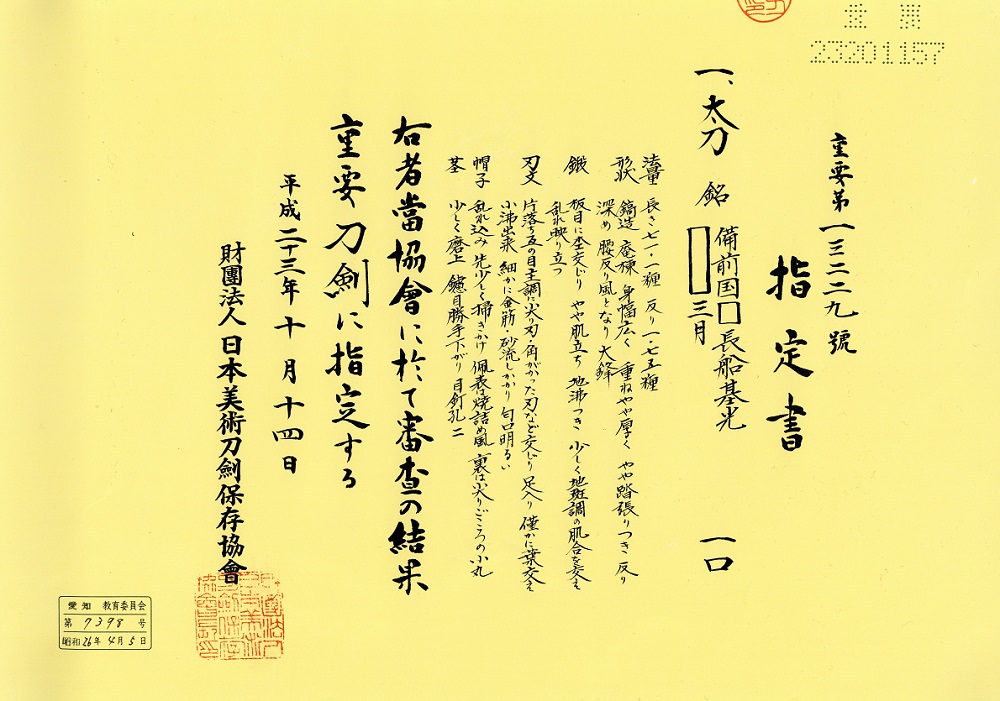 重要
23201157
重要第一三二二九號
指定書
一、太刀 銘 備前国□長船基光 一口
三月
法量 長さ七一・一糎 反り一・七五糎
形状 鎬造 庵棟 身幅広く 重ねやや厚く やや踏張りつき 反り
深め 腰反り風となり 大鋒
鍛 板目に杢交じり やや肌立ち 地沸つき 少しく地斑調の肌合を交え
乱れ映り立つ
刃文 片落ち互の目主調に尖り刃・角がかった刃など交じり 足入り 僅かに葉交え
小沸出来 細かに金筋・砂流しかかり 匂口明るい
帽子 乱れ込み 先少しく掃きかけ 佩表は焼詰め風 裏は尖りごころの小丸
茎 少しく磨上 鑢目勝手下がり 目釘孔二
右者當協會に於て審査の結果
重要刀劍に指定する
平成二十三年十月十四日
財團法人日本美術刀劍保存協會
愛知 教育委員会
第7398号
昭和26年4月5日